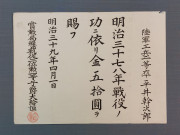 陸軍工兵一等卒平井幹次郎
明治三十七八年戦役ノ
功ニ依リ金五拾圓ヲ
賜フ
明治三十九年四月一日
賞勲局総裁従二位勲一等子爵大給恒